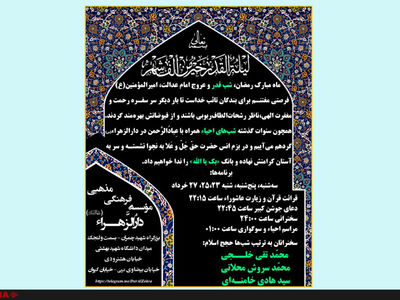 بسمه تعالی
لیلة القدر خیر من الف شهر
ماه مبارک رمضان، شب قدر و عروج امام عدالت، امیرالمؤمنین(ع)
فرصتی مغتنم برای بندگان تائب خداست تا بار دیگر سر سفره رحمت و
مغفرت الهی، ناظر رشحات الطاف ربوبی باشند و از فیوضاتش بهره‌مند گردند.
همچون سنوات گذشته شب‌های احیاء، همراه با عبادُالرَّحمن در دارالزهراء
گردهم می‌آییم و در بزم انس حضرت حقّ جلّ و علا به نجوا نشسته و سر به
آستان کرامتش نهاده و بانگ «بک یا الله» را ندا خواهیم داد.
برنامه‌ها:
سه‌شنبه، پنج‌شنبه، شنبه ۲۳، ۲۵، ۲۷ خرداد
قرائت قرآن و زیارت عاشوراء ساعت ۲۲:۱۵
دعای جوشن کبیر ساعت ۲۲:۴۵
سخنرانی ساعت ۲۴:۰۰
مراسم احیاء و سوگواری ساعت ۰۱:۰۰
سخنرانان به ترتیب شب‌ها حجج اسلام:
محمّد تقی خلـــجی
محمّد سروش محلاتی
سید هادی خامنه‌ای
مؤسسه
فرهنگی
مذهبی
دارالزهراء
بزرگراه شهید چمران - پست ولنجک
میدان دانشگاه شهید بهشتی
خیابان هشترودی
خیابان بیضاوی نبی - خیابان کیوان